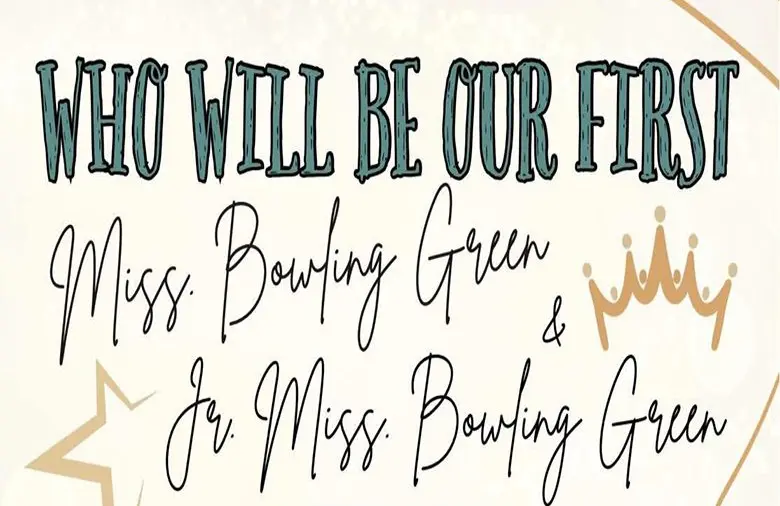 WHO WILL BE OUR FIRST
Miss. Bowling Green
&
Jr. Miss. Bowling Green